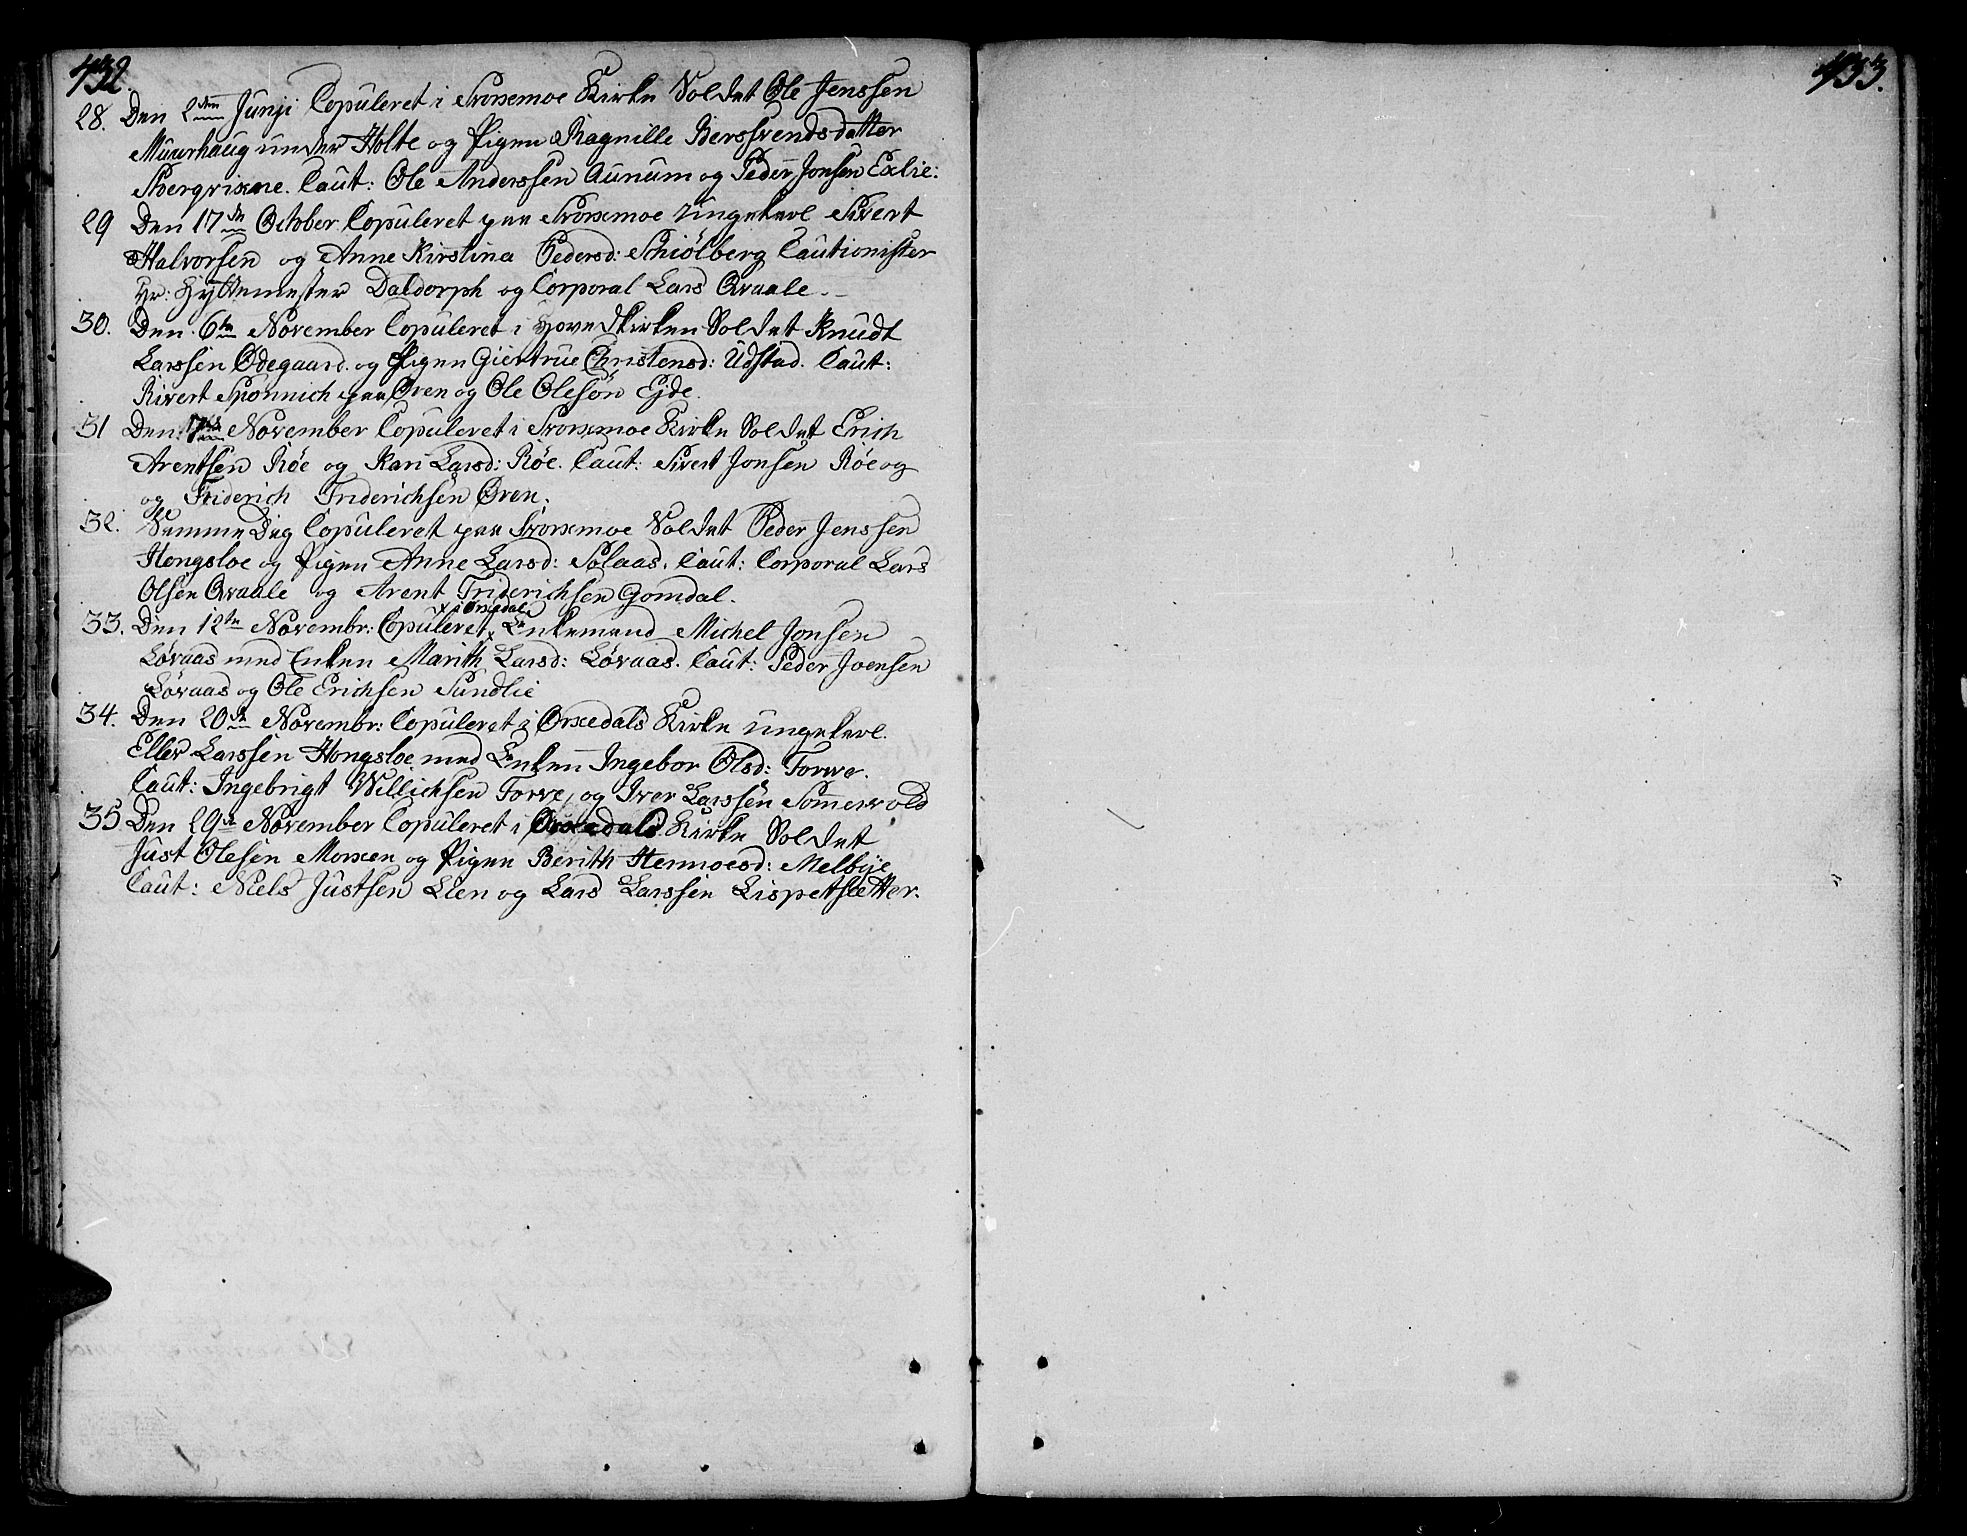 432.
28. Den 2den Junji Copuleret i Svorkmoe Kirke Soldat Ole Jenssen
Muurhaug under Holte og Pigen Ragnille Berssvendsdatter
Caut: Ole Anderssen Aunum og Peder Jonsen Exlie:
29 Den 17de October Copuleret paa Svorkmoe Ungekarl Sivert
Halvorsen og Anne Kirstina Pedersd: Schiölberg Cautionister
Hr: Hyttemester Daldorph og Corporal Lars Qvaale.
30. Den 6te November Copuleret i Hovedkirken Soldat Knudt
Larssen Ødegaard og Pigen Giertrue Christensd: Udstad. Caut:
Sivert Sponnich paa Øren og Ole Olesøn Ejde.
31 Den November Copuleret i Svorkmoe Kirke Soldat Erich
Arentsen Röe og Kari Larsd: Röe. Caut: Sivert Jonsen Röe og
og Friderich Friderichsen Øren.
32. Samme Dag Copuleret paa Svorkmoe Soldat Peder Jenssen
Hongsloe og Pigen Anne Larsd: Solaas. Caut: Corporal Lars
Olsen Qvaale og Arent Friderichsen Gomdal.
x i Orkedal
33. Den 12te Novembr: Copuleret x Enkemand Michel Jonsen
Løvaas med Enken Marith Larsd: Løvaas. Caut: Peder Joensen
Løvaas og Ole Erichsen Sundlie
34. Den 20de Novembr: Copuleret i Orkedals Kirke Ungekarl
Eller Larssen Hongsloe med Enken Ingebor Olsd: Forve.
Caut: Ingebrigt Willichsen Forve, og Iver Larssen Somervold
35 Den 29de November Copuleret i Orkedals Kirke Soldat
Just Olesen Morken og Pigen Berith Hermoesd: Melbye
Caut: Niels Justsen Lien og Lars Larssen Lispetsætter.
433.